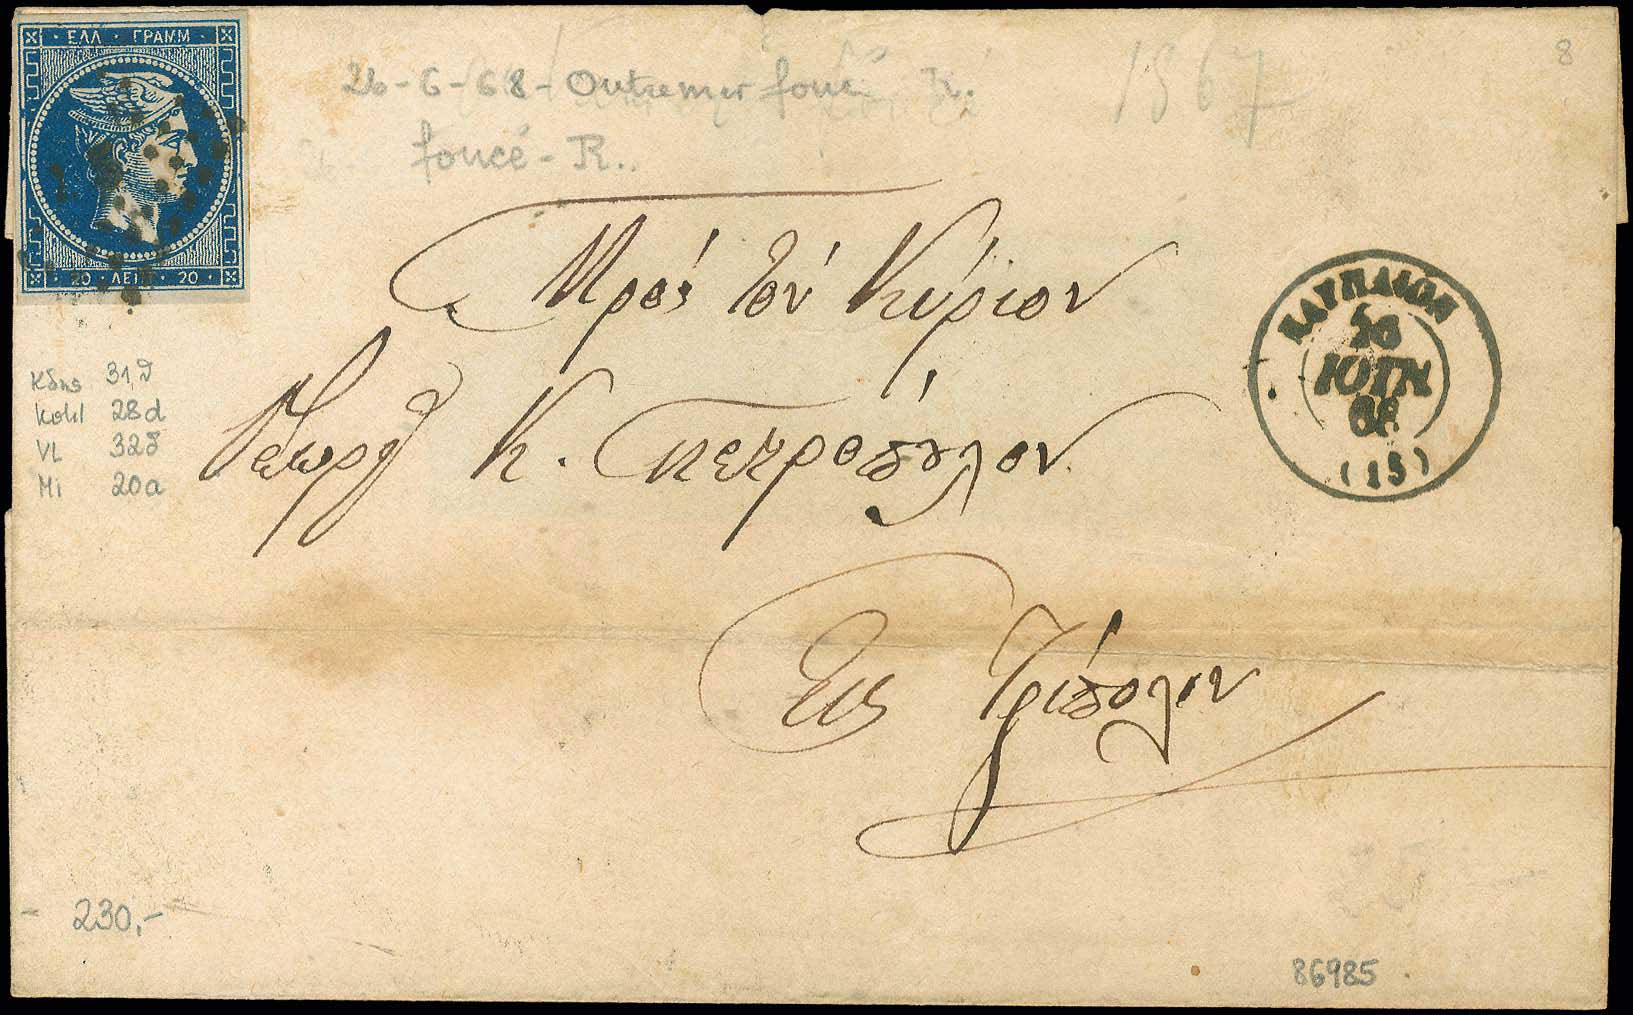 ΕΛΛ · ΓΡΑΜΜ
20 · ΛΕΠΤ · 20
26-6-68 - Outremer foncé R.
1867
8
foncé - R.
Πρὸς τὸν Κύριον
Γεώργ Κ. Πετρόπουλον
Εις Τρίπολιν
ΝΑΥΠΛΙΟΝ
26
ΙΟΥΝ
68
(15)
Κδης 31δ
Kohl 28d
VL 32δ
Mi 20a
- 230,-
86985